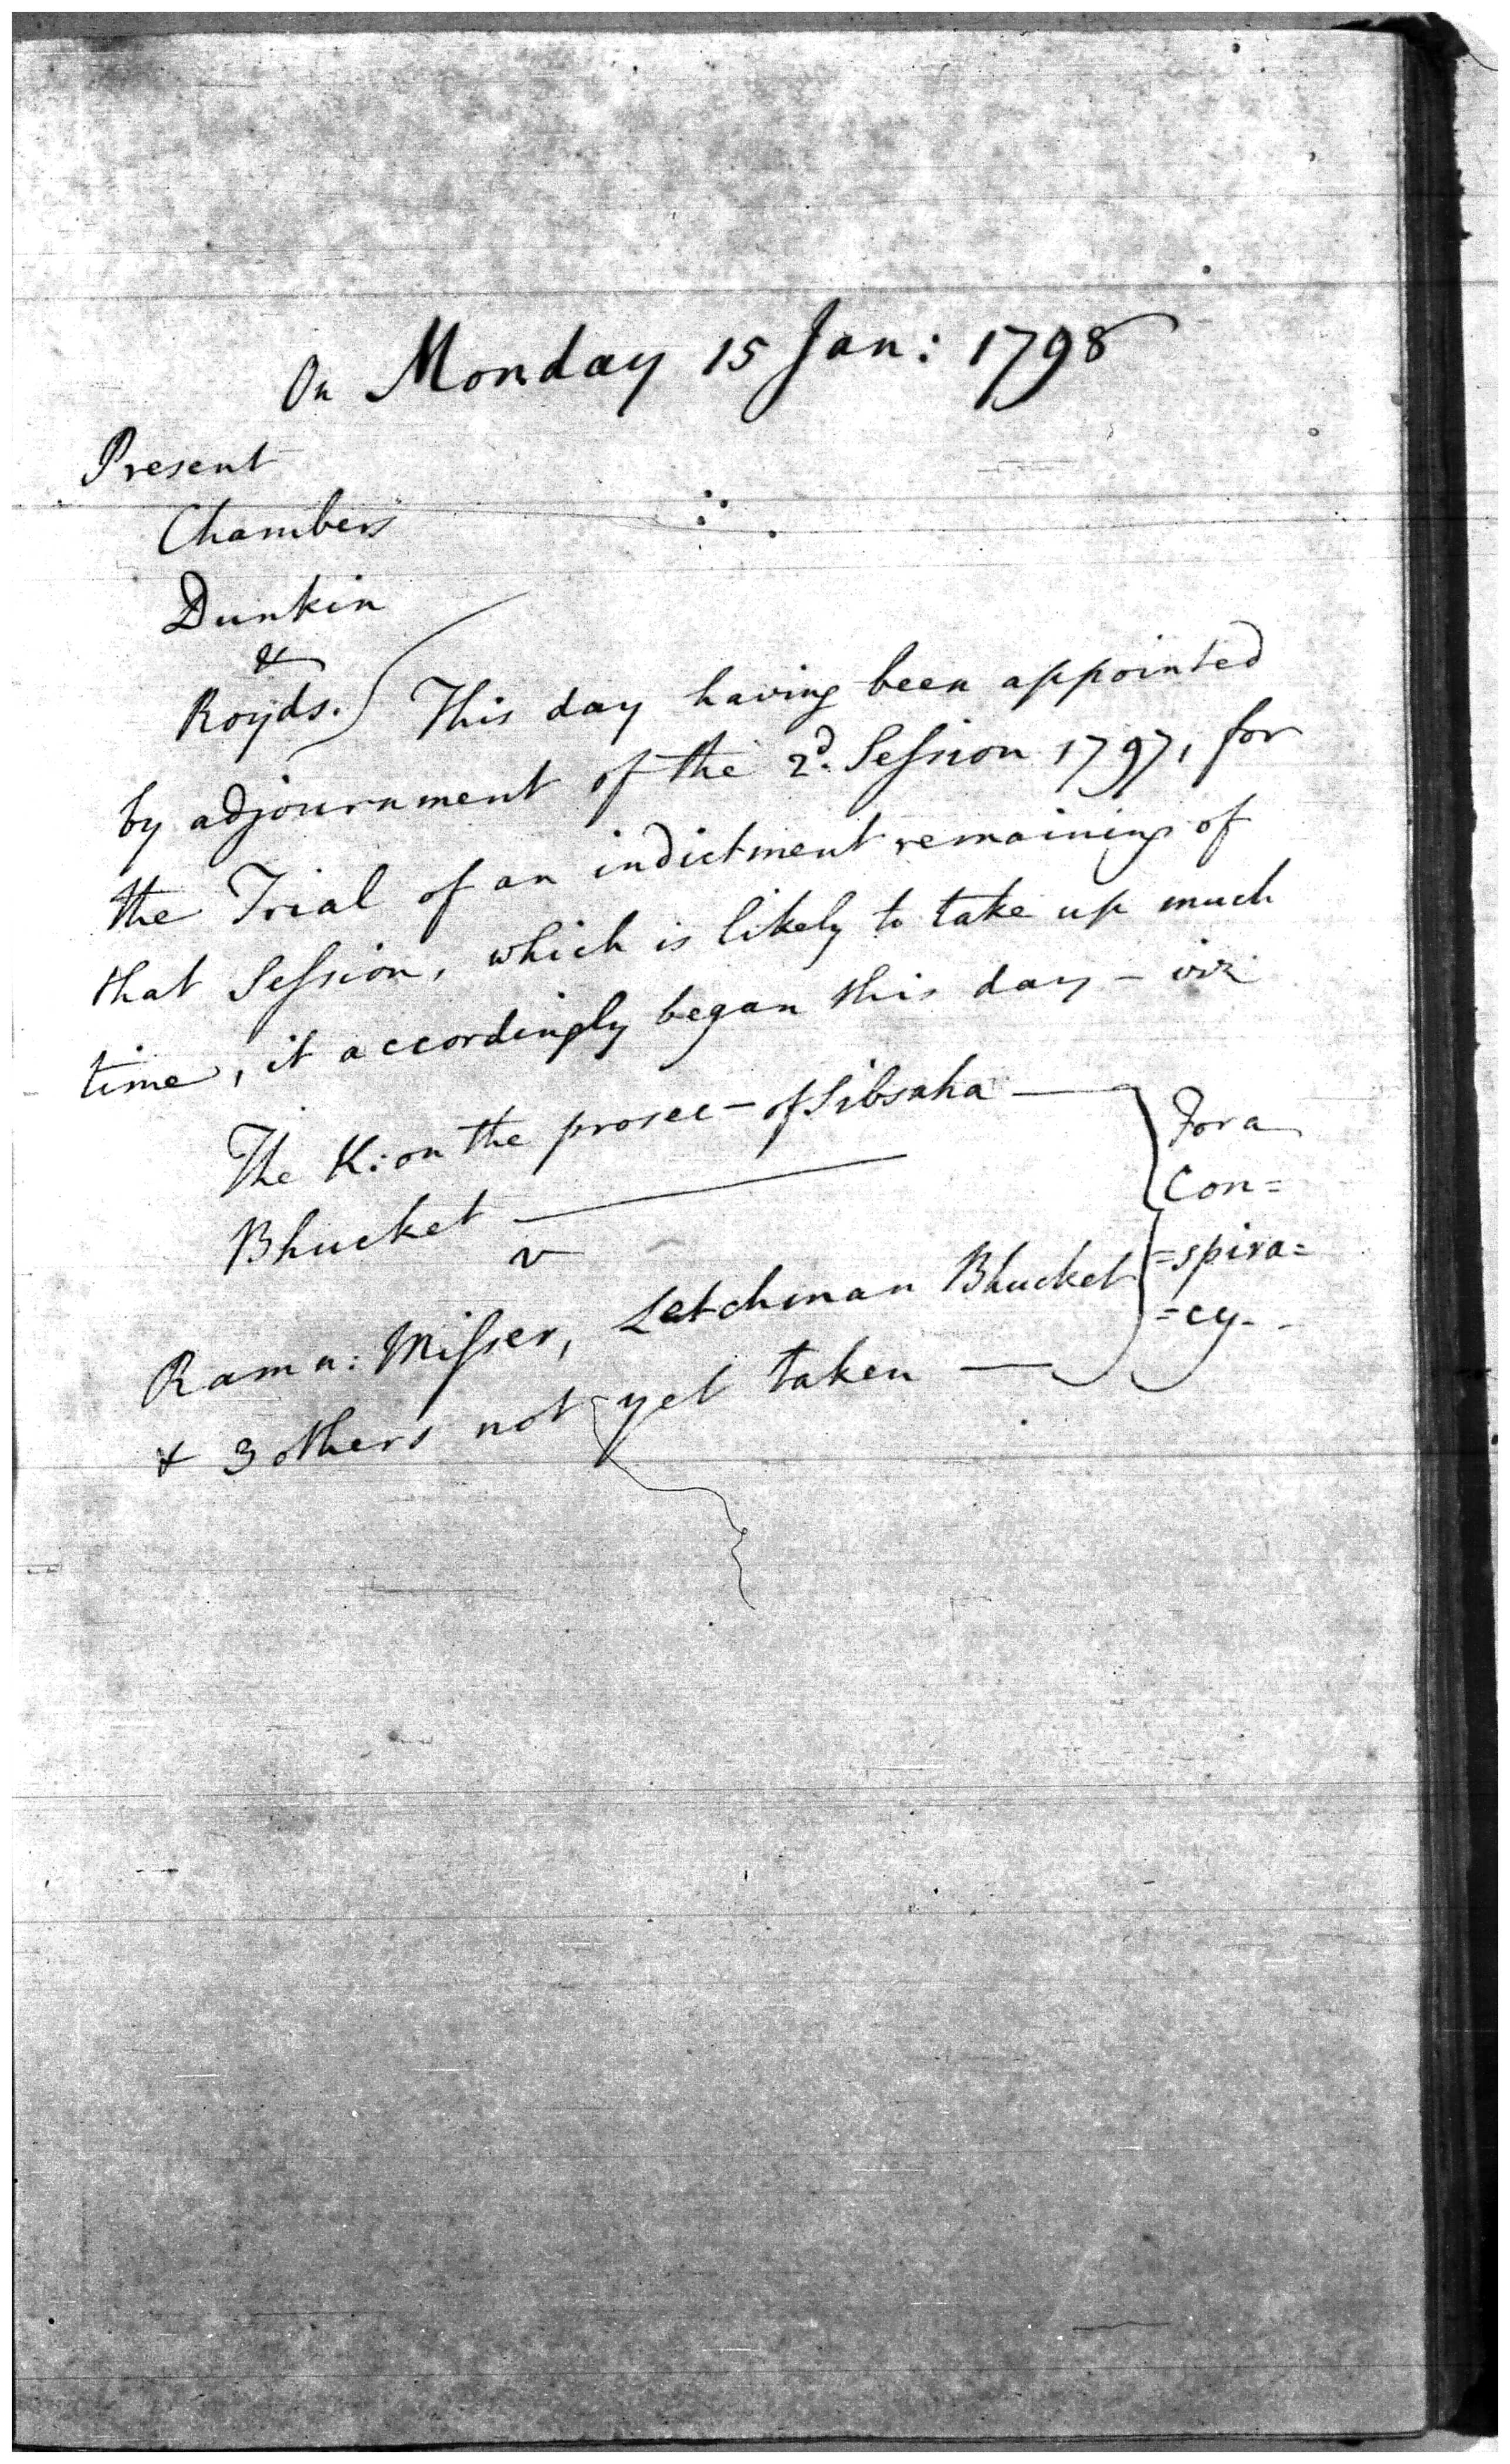 On Monday 15 Jan: 1798
Present
Chambers
Dunkin
&
Royds. This day having been appointed
by adjournment of the 2d. Session 1797, for
the Trial of an indictment remaining of
that Session, which is likely to take up much
time, it accordingly began this day - viz
The K: on the prosec - of Sibsaha
Bhucket
v
Ram n: Misser, Letchman Bhucket
& 3 others not yet taken
For a
Con=
=spira=
=cy.